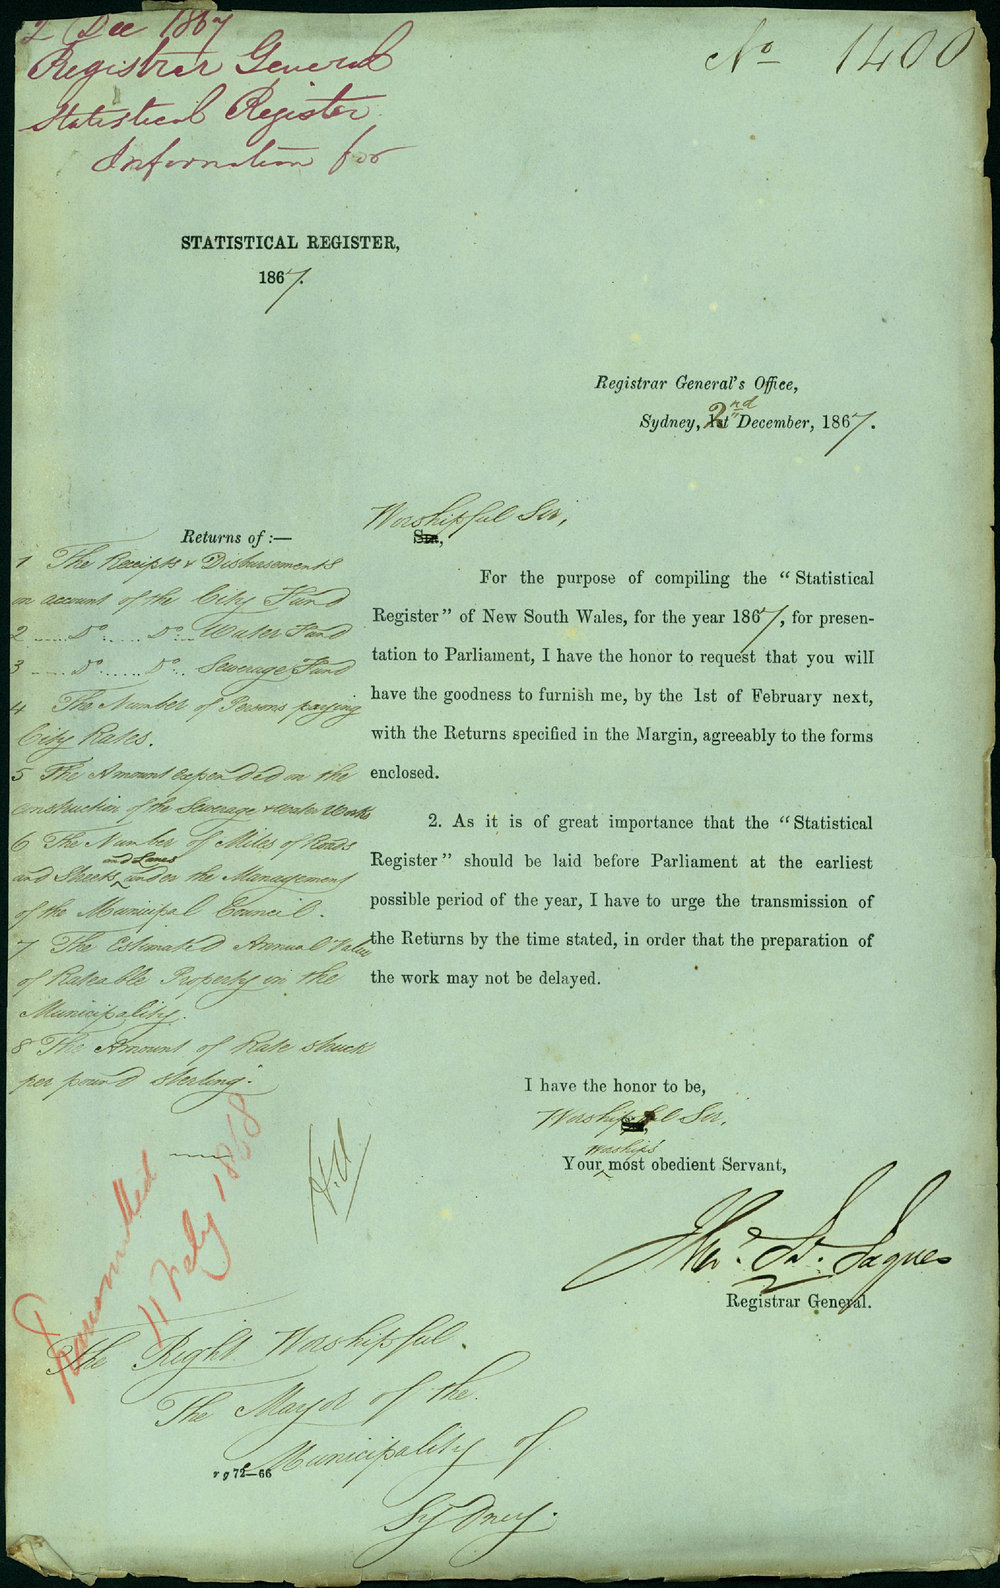 2 Dec 1867
Registrar General
Statistical Register
Information for
No 1400
STATISTICAL REGISTER,
1867.
Registrar General's Office,
Sydney, 1st 2nd December, 1867.
Returns of :—
1 The Receipts & Disbursements
on account of the City Fund
2 ...... Do ...... Do ... Water Fund
3 ...... Do ...... Do ... Sewerage Fund
4 The Number of Persons paying
City Rates.
5 The Amount expended on the
Construction of the Sewerage & Water Works
6 The Number of Miles of Roads
and Lanes
and Streets ‸ under the Management
of the Municipal Council.
7 The Estimated Annual Value
of Rateable Property in the
Municipality.
8 The Amount of Rate struck
per pound sterling.
Worshipful Sir,
Sir,
For the purpose of compiling the "Statistical
Register" of New South Wales, for the year 1867, for presen-
tation to Parliament, I have the honor to request that you will
have the goodness to furnish me, by the 1st of February next,
with the Returns specified in the Margin, agreeably to the forms
enclosed.
2. As it is of great importance that the "Statistical
Register" should be laid before Parliament at the earliest
possible period of the year, I have to urge the transmission of
the Returns by the time stated, in order that the preparation of
the work may not be delayed.
I have the honor to be,
Worshipful Sir,
Worship's
Your ‸ most obedient Servant,
Registrar General.
Transmitted
11 Feby 1868
The Right Worshipful
The Mayor of the
Municipality of
Sydney.
r g 72—66